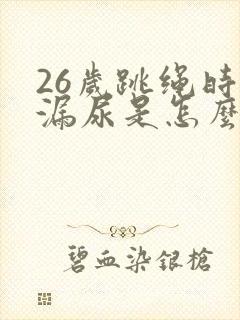 26歲跳绳時
漏尿是怎麼
碧血染銀槍